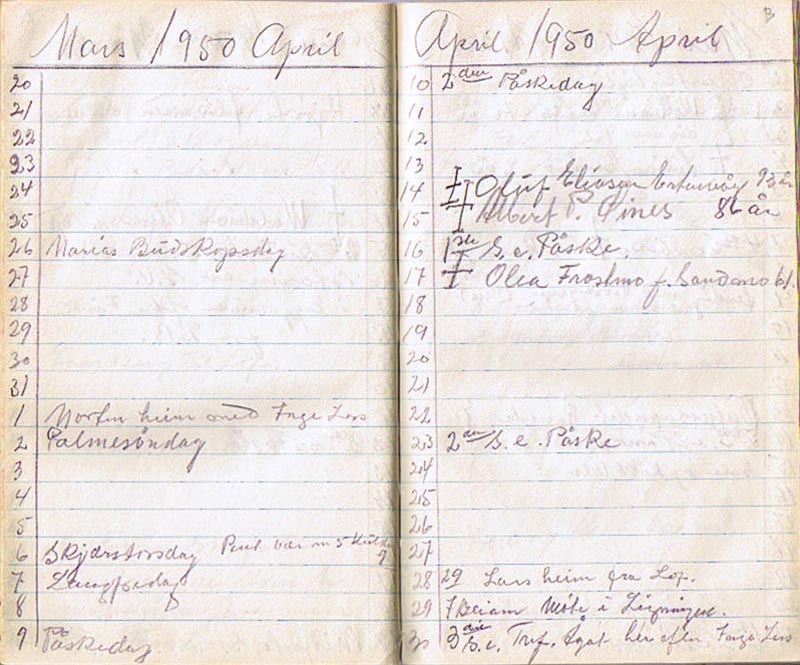 Mars 1950 April
20
21
22
23
24
25
26 Marias Budskapsdag
27
28
29
30
31
1 heim med Inge Lars
2 Palmesöndag
3
4
5
6 Skjærstorsdag Pent vær m 5
7 Langfredag
8
9 Påskedag
April 1950 April
3
10 2den Påskedag
11
12
13
14 Oluf Eliasen 93 år
15 Albert P. 86 år
16 1ste S. e. Påske.
17 Olea Frostmo f. Sandmo 61.
18
19
20
21
22
23 2den S. e. Påske
24
25
26
27
28 29 Lars heim fra Lop.
29 Møte i
30 3die S. e. her efter Inge Lars